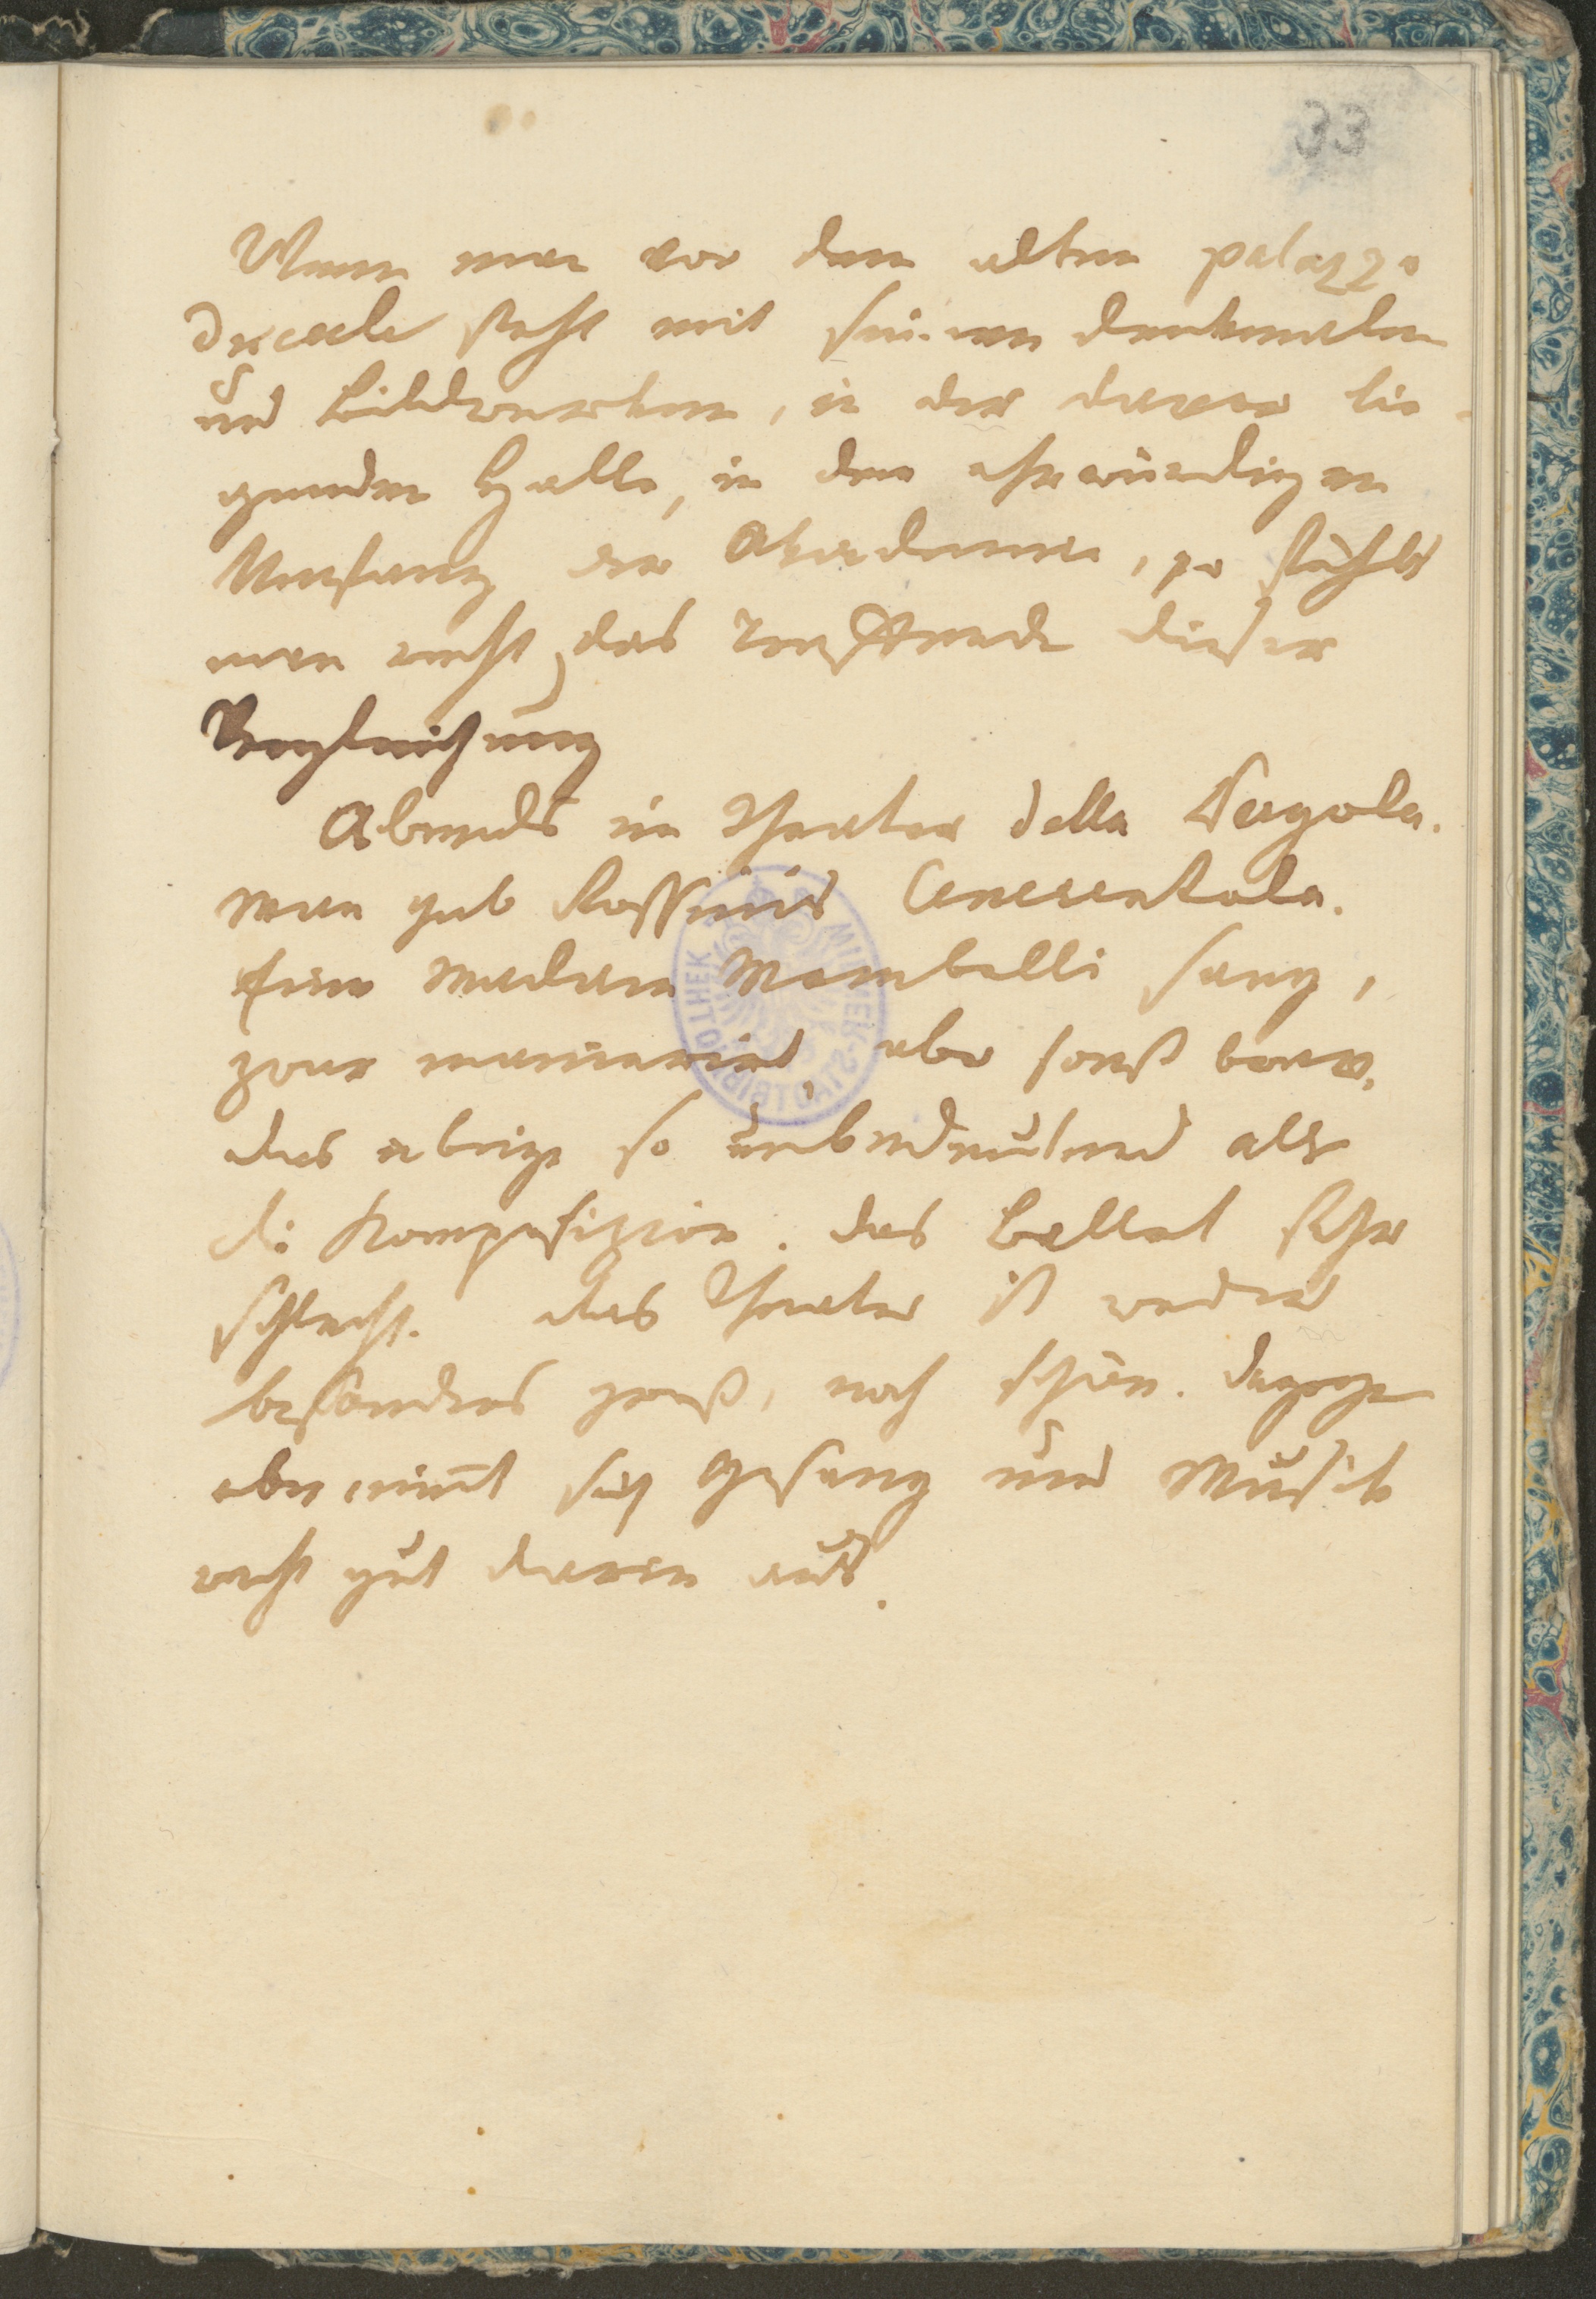 33
Wenn man vor dem alten palazzo
Ducale steht mit seinen Denkmalen
und Bildwerken, in der davor lie-
genden Halle, in dem ehrwürdigen
Umfang der Akademie, so fühlt
man recht das Treffende dieser
Vergleichung
Abends im Theater della Pergola.
Man gab Rossinis Cenerentola.
Eine Madam Mombelli sang,
zwar manierirt, aber sonst brav.
das übrige so unbedeutend als
die Komposizion. das Ballet sehr
schlecht. das Theater ist weder
besonders groß, noch schön. dagegen
aber nim̅t sich Gesang und Musik
recht gut darin aus.
WIENER STADTBIBLIOTHEK